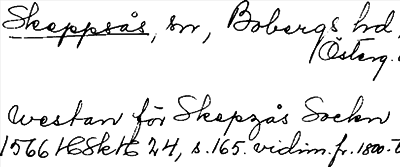 Skeppsås, sn, Bobergs hd,
Österg.
Westan för Skepzås Sockn
1566 HSkH 24, s. 165. vidim. fr. 1800-t